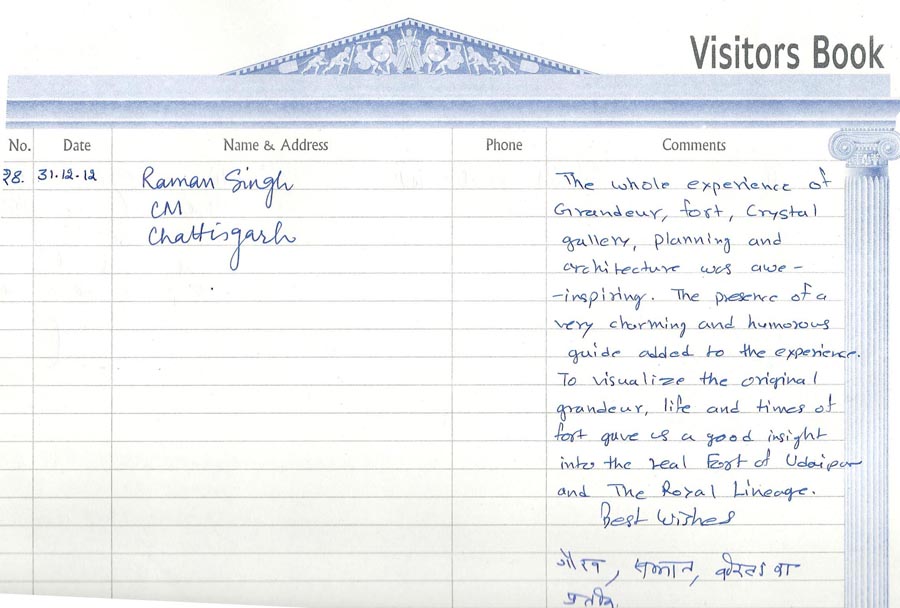 Visitors Book
No. Date Name & Address Phone Comments
28. 31.12.12 Raman Singh
CM
Chattisgarh
The whole experience of
Grandeur, fort, Crystal
gallery, planning and
architecture was awe-
-inspiring. The presence of a
very charming and humorous
guide added to the experience.
To visualize the original
grandeur, life and times of
fort gave us a good insight
into the real Fort of Udaipur
and The Royal Lineage.
Best Wishes
गौरव, सम्मान, वीरता का
प्रतीक.